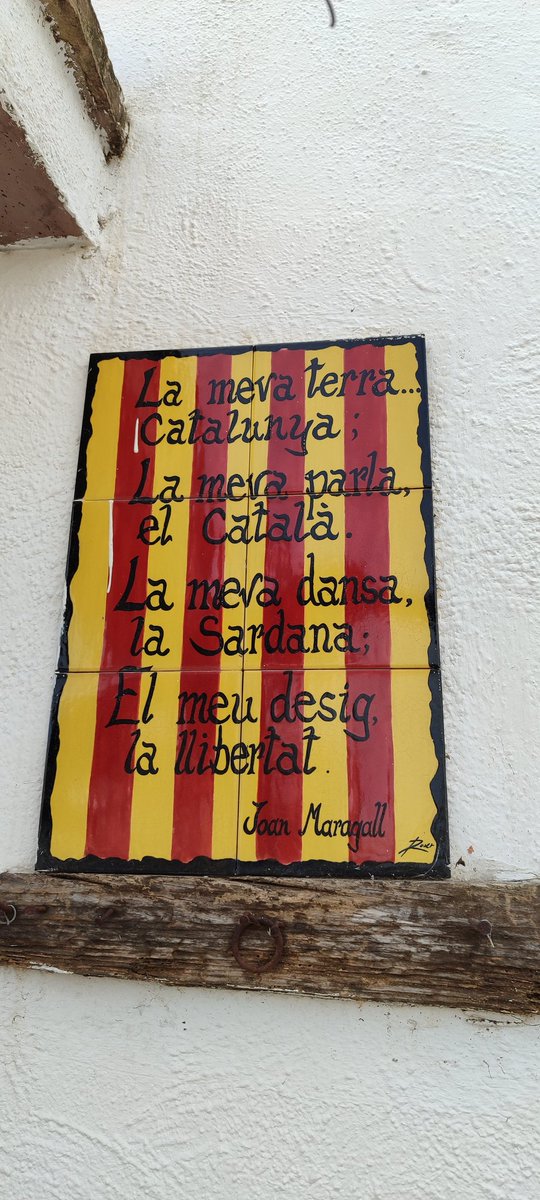 La meva terra...
Catalunya;
La meva parla,
el Català.
La meva dansa,
la Sardana;
El meu desig,
la llibertat.
Joan Maragall